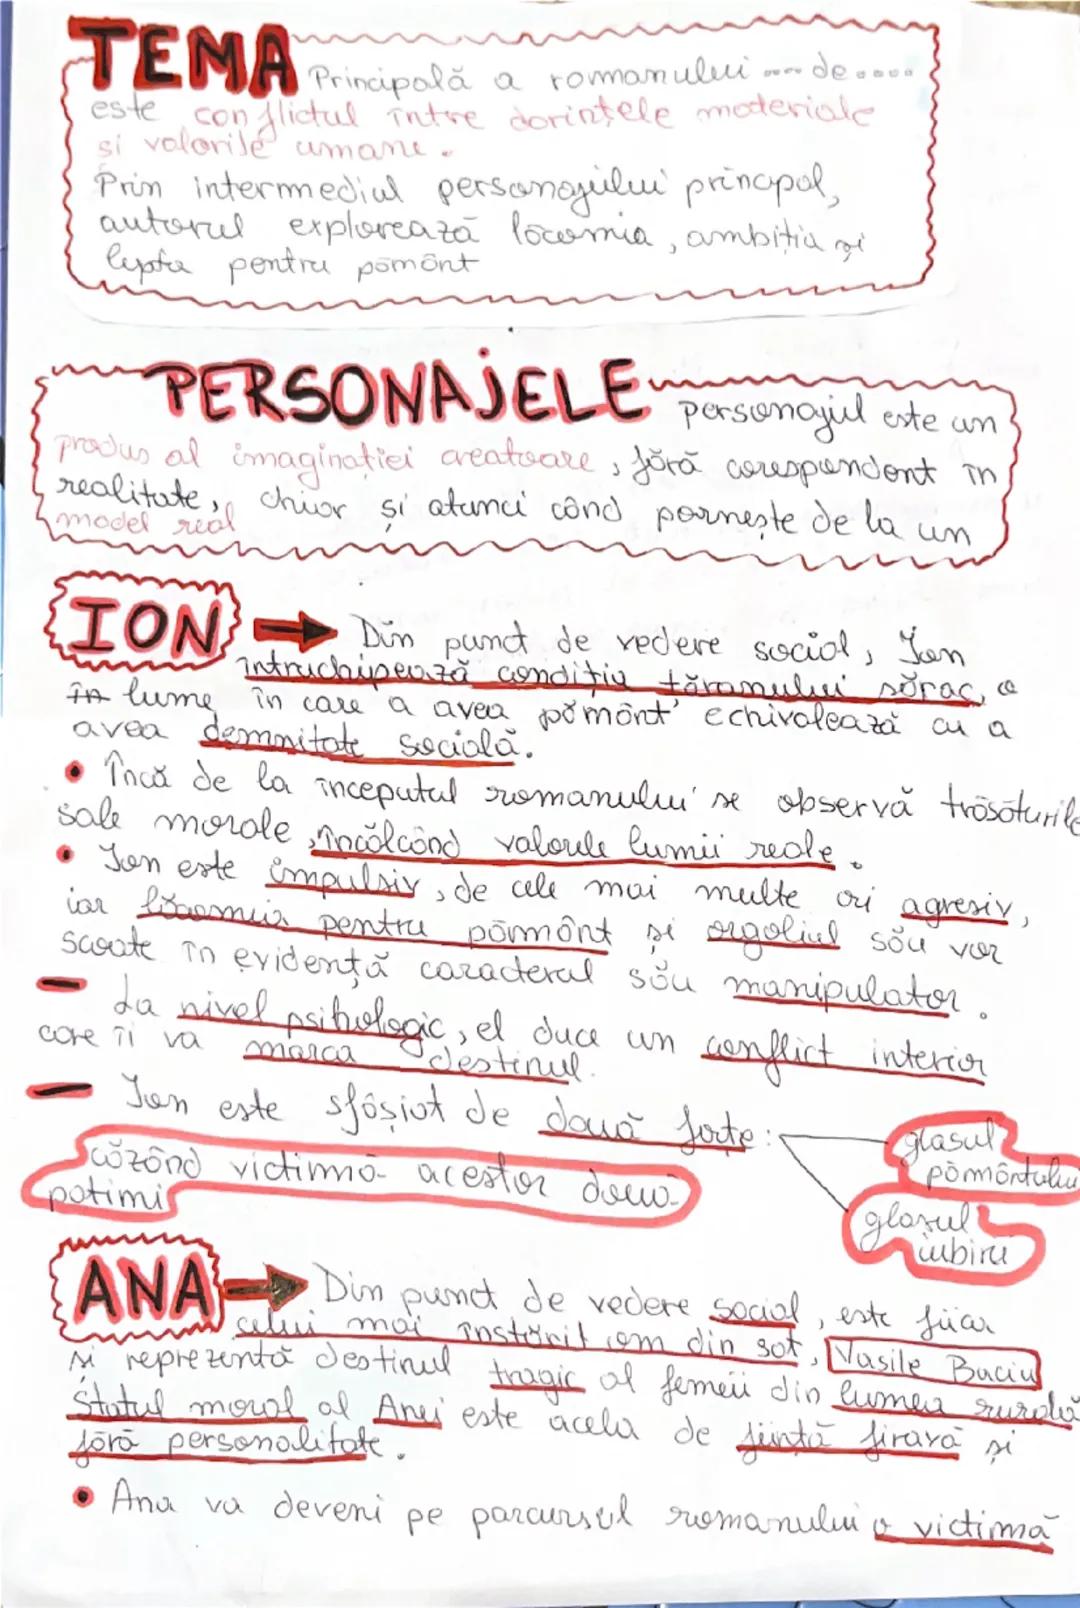 TEMA Principală a romanului .... de .....
este conflictul între dorințele materiale
și valorile umane.
Prin intermediul personajului principal,
autorul explorează lăcomia, ambiția și
lupta pentru pământ
PERSONAJELE personajul este un
produs al imaginației creatoare, fără corespondent în
realitate, chiar și atunci când pornește de la un
model real
ION → Din punct de vedere social, Ion
întruchipează condiția țăranului sărac, a
în lume în care a avea pământ echivalează cu a
avea demnitate socială.
• Încă de la începutul romanului se observă trăsăturile
sale morale, încălcând valorile lumii reale.
• Ion este impulsiv, de cele mai multe ori agresiv,
iar lăcomia pentru pământ și orgoliul său vor
scoate în evidență caracterul său manipulator.
– La nivel psihologic, el duce un conflict interior
care îi va marca destinul.
– Ion este sfâșiat de două forțe:
glasul
pământului
căzând victimă acestor două
patimi
glasul
iubirii
ANA → Din punct de vedere social, este fiica
celui mai înstărit om din sat, Vasile Baciu
și reprezintă destinul tragic al femeii din lumea rurală
Statul moral al Anei este acela de ființă firavă și
fără personalitate.
• Ana va deveni pe parcursul romanului o victimă